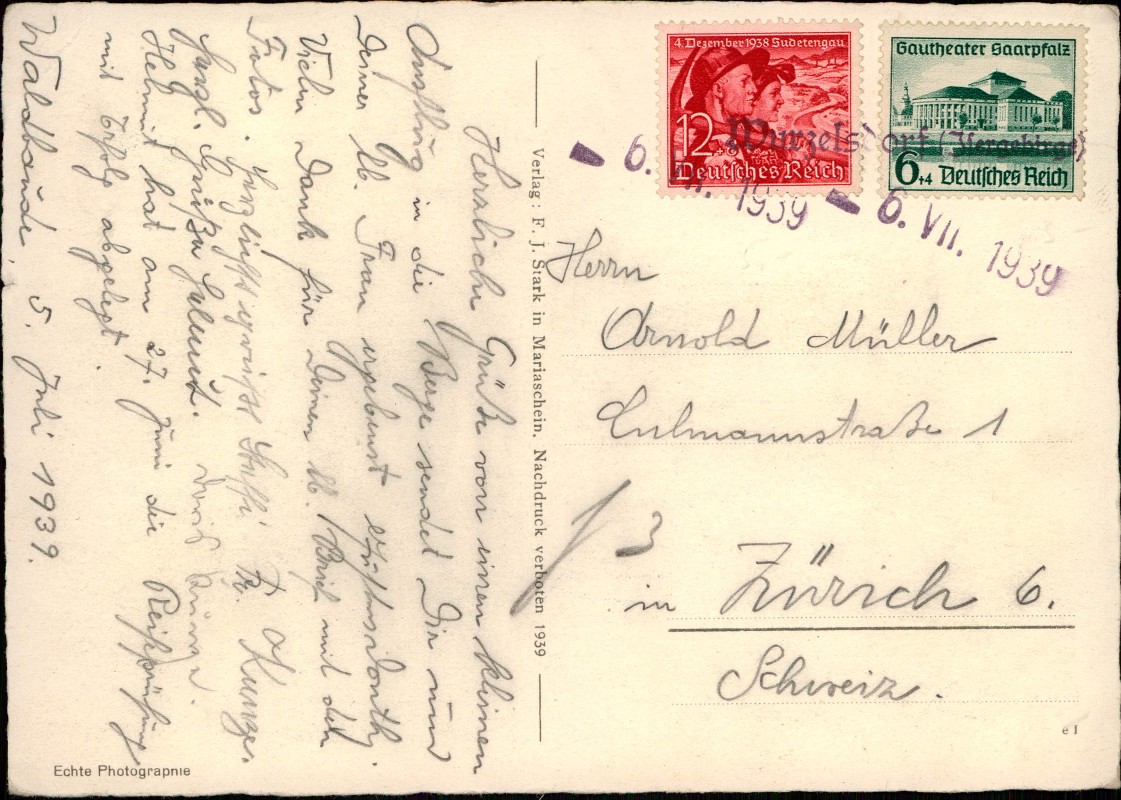 4. Dezember 1938 Sudetengau
12
Deutsches Reich
Gautheater Saarpfalz
6+4 Deutsches Reich
Wurzelsdorf (Isergebirge)
6. VII. 1939
6. VII. 1939
Herrn
Arnold Müller
Culmannstraße 1
/3
in Zürich 6.
Schweiz.
e I
Verlag: F. J. Stark in Mariaschein. Nachdruck verboten 1939
Herzliche Grüße von einem kleinen
Ausflug in die Berge sendet Dir und
Deiner lb. Frau ergebenst
Vielen Dank für Deinen lb. Brief mit den
Fotos. Fr. Kunze.
Herzl. Grüße Helmut.
Helmut hat am 27. Juni die Reifeprüfung
mit Erfolg abgelegt.
Waldbaude, 5. Juli 1939.
Echte Photographie